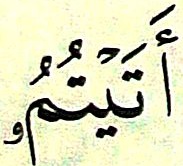 أَتَيْتُمُۥ